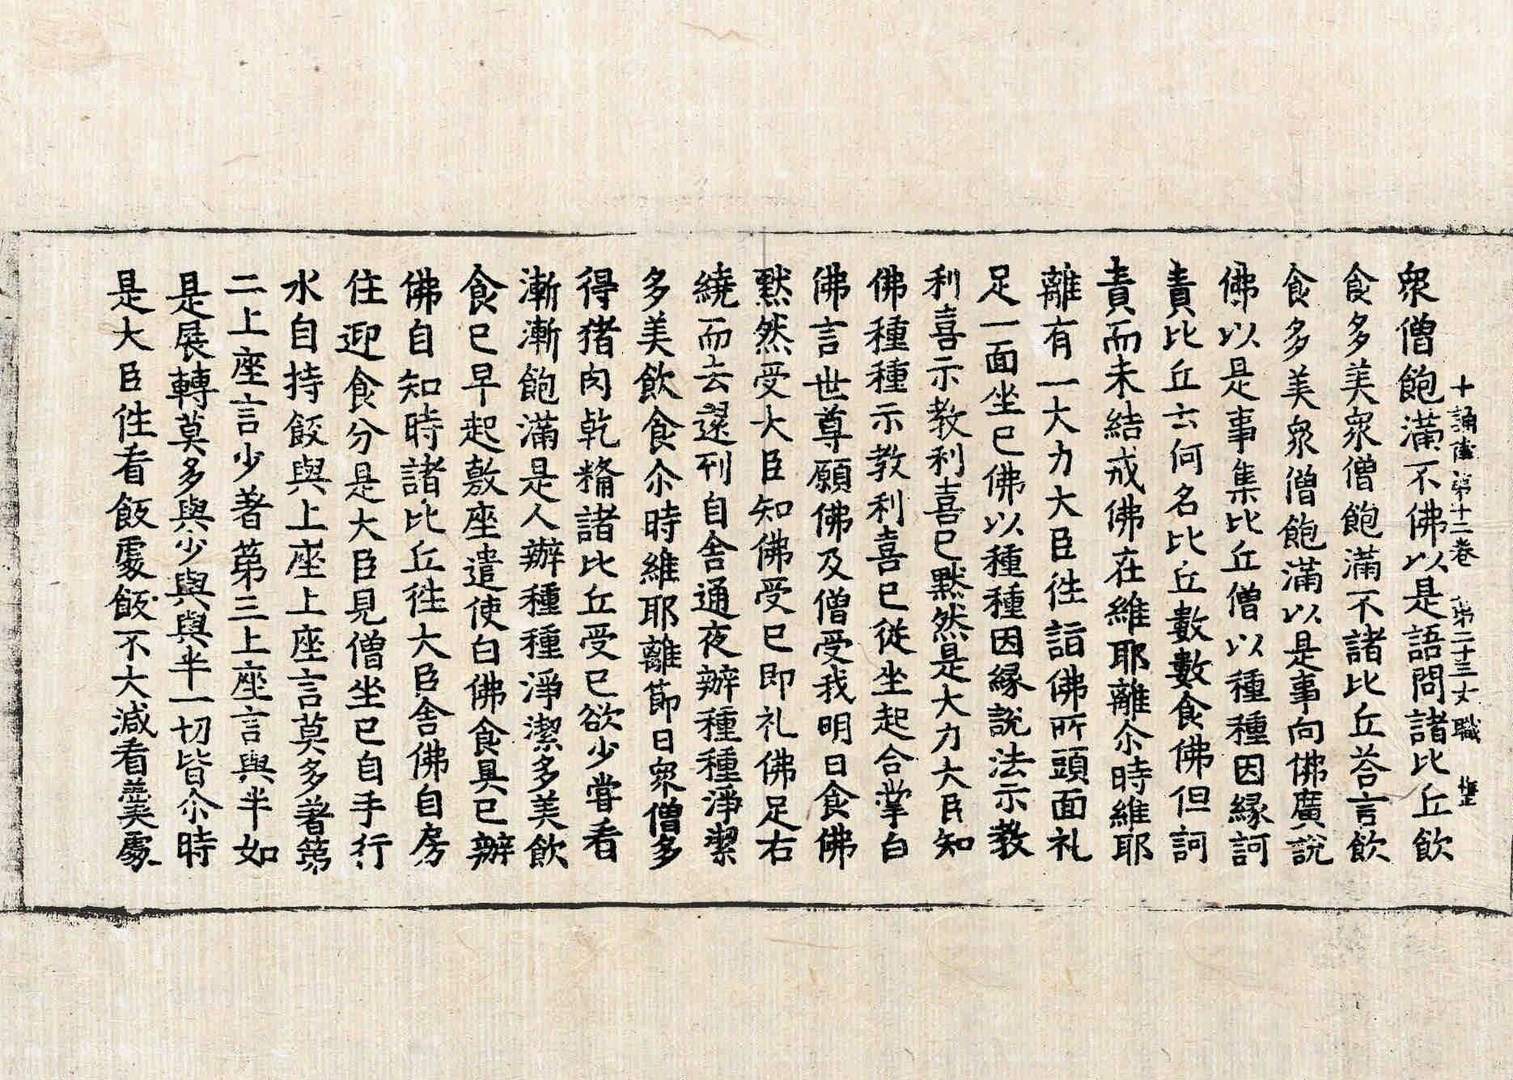 十誦律第十二卷　第二十三丈　職
衆僧飽滿不佛以是語問諸比丘飲
食多美衆僧飽滿不諸比丘荅言飲
食多美衆僧飽滿以是事向佛廣說
佛以是事集比丘僧以種種因緣訶
責比丘云何名比丘數數食佛但訶
責而未結戒佛在維耶離尒時維耶
離有一大力大臣徃詣佛所頭面礼
足一面坐已佛以種種因緣說法示教
利喜示教利喜已黙然是大力大臣知
佛種種示教利喜已從坐起合掌白
佛言世尊願佛及僧受我明日食佛
黙然受大臣知佛受已即礼佛足右
繞而去還到自舍通夜辦種種淨潔
多美飲食尒時維耶離節日衆僧多
得猪肉乾糒諸比丘受已欲少甞看
漸漸飽滿是人辦種種淨潔多美飲
食已早起敷座遣使白佛食具已辦
佛自知時諸比丘徃大臣舍佛自房
住迎食分是大臣見僧坐已自手行
水自持飯與上座上座言莫多著第
二上座言少著第三上座言與半如
是展轉莫多與少與與半一切皆尒時
是大臣徃看飯處飯不大減看羹處